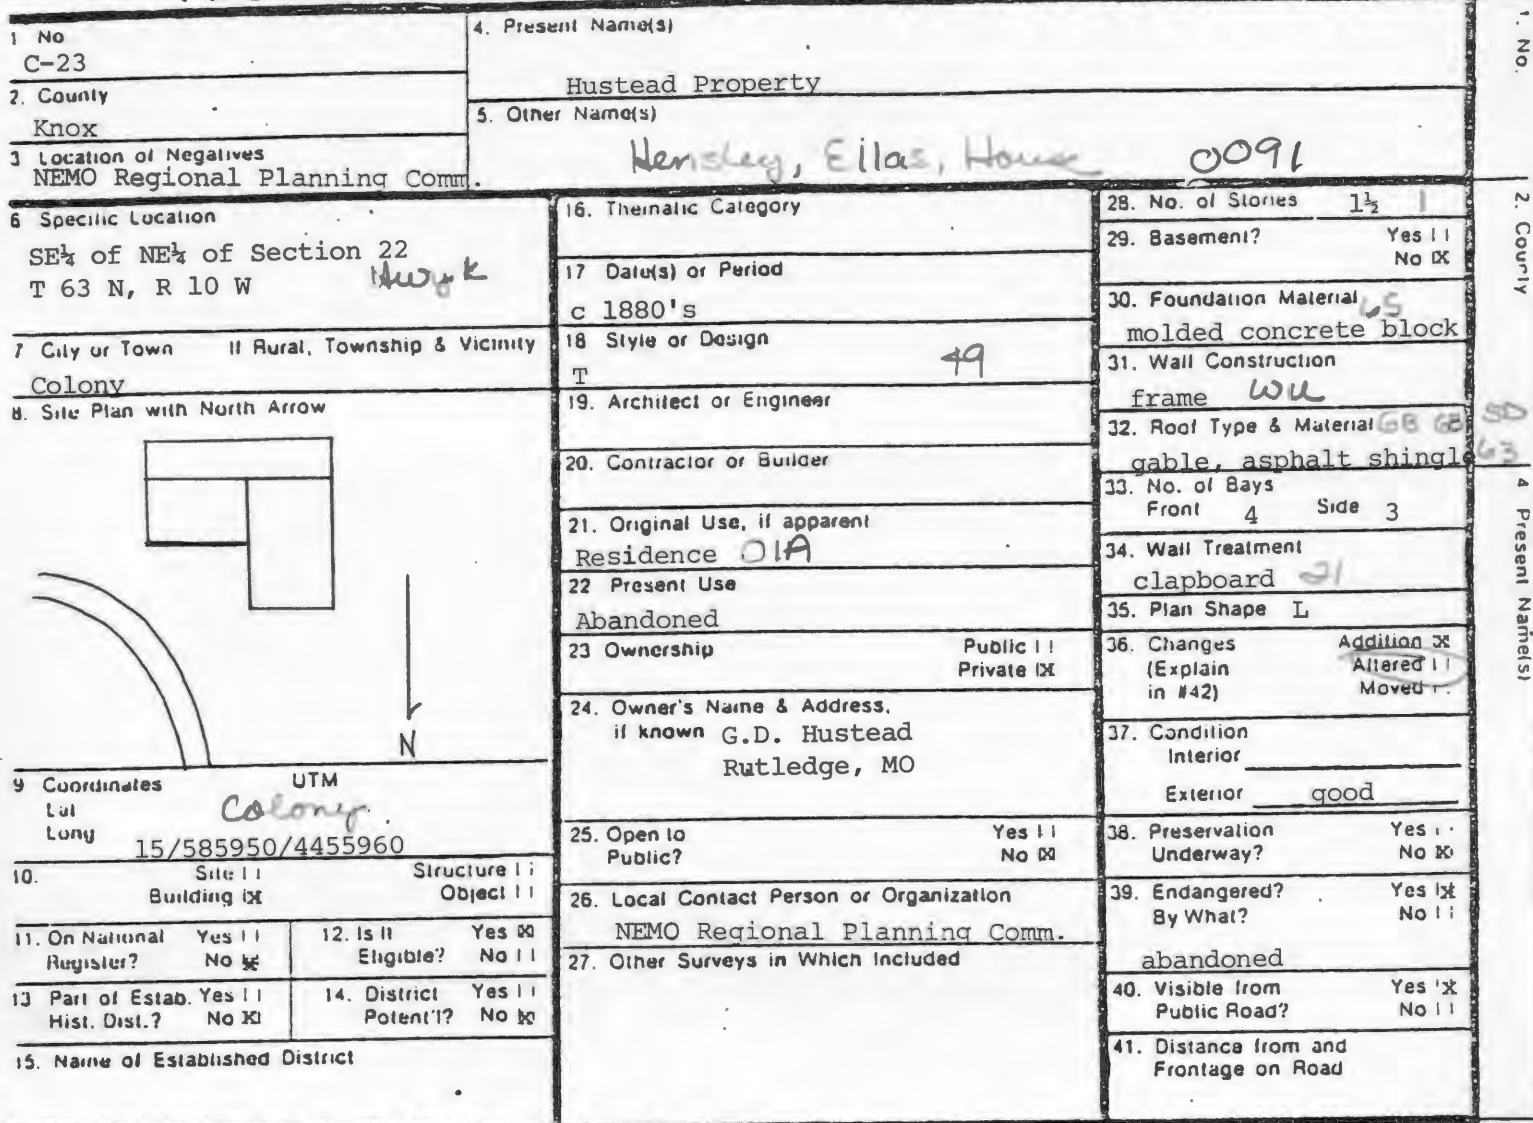 1 No
C-23
2. County
Knox
3 Location of Negatives
NEMO Regional Planning Comm.
4. Present Name(s)
Hustead Property
5. Other Name(s)
Hensley, Eilas, House 0091
6 Specific Location
SE¼ of NE¼ of Section 22
T 63 N, R 10 W
Hwy K
7 City or Town If Rural, Township & Vicinity
Colony
8. Site Plan with North Arrow
N
9 Coordinates UTM
Lat
Long
Colony
15/585950/4455960
10. Site | | Structure | |
Building |X| Object | |
11. On National Register? Yes | | No |X|
12. Is It Eligible? Yes |X| No | |
13 Part of Estab. Hist. Dist.? Yes | | No |X|
14. District Potent'l? Yes | | No |X|
15. Name of Established District
16. Thematic Category
17 Date(s) or Period
c 1880's
18 Style or Design
T 49
19. Architect or Engineer
20. Contractor or Builder
21. Original Use, if apparent
Residence 01A
22 Present Use
Abandoned
23 Ownership Public | |
Private |X|
24. Owner's Name & Address,
if known G.D. Hustead
Rutledge, MO
25. Open to Yes | |
Public? No |X|
26. Local Contact Person or Organization
NEMO Regional Planning Comm.
27. Other Surveys in Which Included
28. No. of Stories 1½ 1
29. Basement? Yes | |
No |X|
30. Foundation Material 65
molded concrete block
31. Wall Construction
frame WU
32. Roof Type & Material GB GB SD
gable, asphalt shingle 63
33. No. of Bays
Front 4 Side 3
34. Wall Treatment
clapboard 21
35. Plan Shape L
36. Changes Addition |X|
(Explain Altered | |
in #42) Moved | |
37. Condition
Interior
Exterior good
38. Preservation Yes | |
Underway? No |X|
39. Endangered? Yes |X|
By What? No | |
abandoned
40. Visible from Yes |X|
Public Road? No | |
41. Distance from and
Frontage on Road
1. No.
2. County
4 Present Name(s)